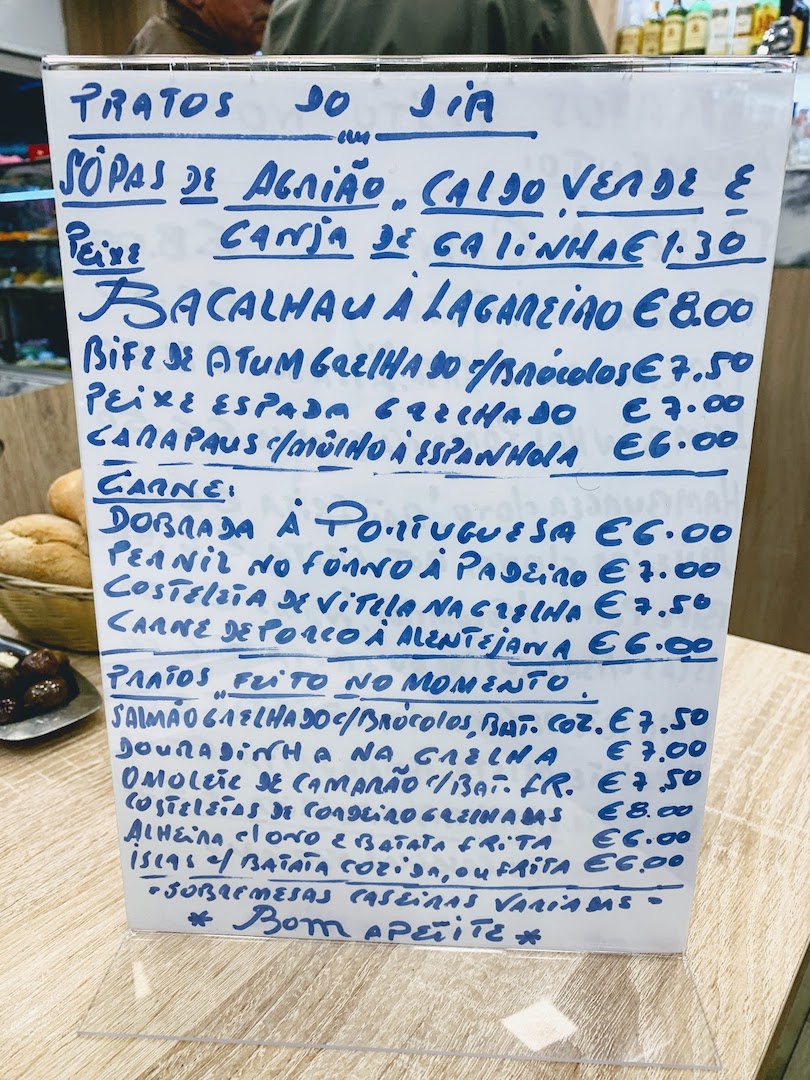 PRATOS DO DIA
SÓPAS DE AGRIÃO,, CALDO VERDE E
CANJA DE GALINHA €1.30
PEIXE
BACALHAU À LAGAREIRO €8.00
BIFE DE ATUM GRELHADO c/BRÓCOLOS €7.50
PEIXE ESPADA GRELHADO €7.00
CARAPAUS c/MÔLHO À ESPANHOLA €6.00
CARNE:
DOBRADA À PORTUGUESA €6.00
PERNIL NO FÔRNO À PADEIRO €7.00
COSTELETA DE VITELA NA GRELHA €7.50
CARNE DE PORCO À ALENTEJANA €6.00
PRATOS,, FEITO NO MOMENTO.
SALMÃO GRELHADO c/BRÓCOLOS, BAT. COZ. €7.50
DOURADINHA NA GRELHA €7.00
OMOLETE DE CAMARÃO c/BAT. FR. €7.50
COSTELETAS DE CORDEIRO GRELHADAS €8.00
ALHEIRA c/OVO E BATATA FRITA €6.00
ISCAS c/ BATATA COZIDA, OU FRITA €6.00
-SOBREMESAS CASEIRAS VARIADAS-
* BOM APETITE *